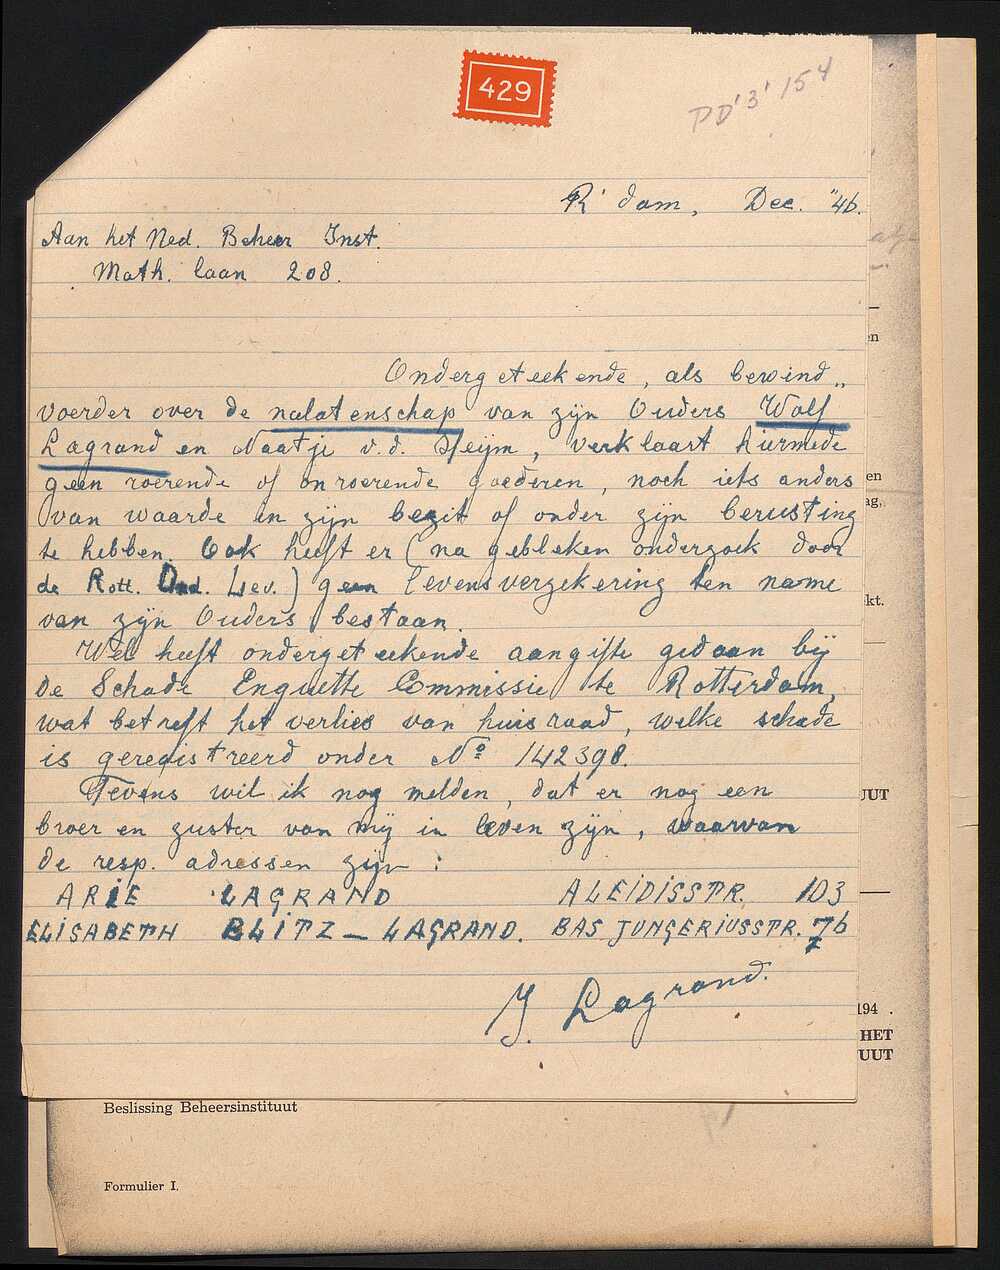 429
PD'3'154
R'dam, Dec. "46.
Aan het Ned. Beheer Inst.
Math. laan 208.
Ondergeteekende, als bewind„
voerder over de nalatenschap van zijn Ouders Wolf
Lagrand en Naatje v.d. Heijm, verklaart hiermede
geen roerende of onroerende goederen, noch iets anders
van waarde in zijn bezit of onder zijn berusting
te hebben. Ook heeft er (na gebleken onderzoek door
de Rott. Ond. Lev.) geen levensverzekering ten name
van zijn Ouders bestaan.
Wel heeft ondergeteekende aangifte gedaan bij
de Schade Enquette Commissie te Rotterdam,
wat betreft het verlies van huisraad, welke schade
is geregistreerd onder No 142398.
Tevens wil ik nog melden, dat er nog een
broer en zuster van mij in leven zijn, waarvan
de resp. adressen zijn:
ARIE LAGRAND ALEIDISSTR. 103
ELISABETH BLITZ – LAGRAND. BAS JUNGERIUSSTR. 76
J. Lagrand.
en
en
ag,
kt.
UUT
194 .
HET
UUT
Beslissing Beheersinstituut
Formulier I.